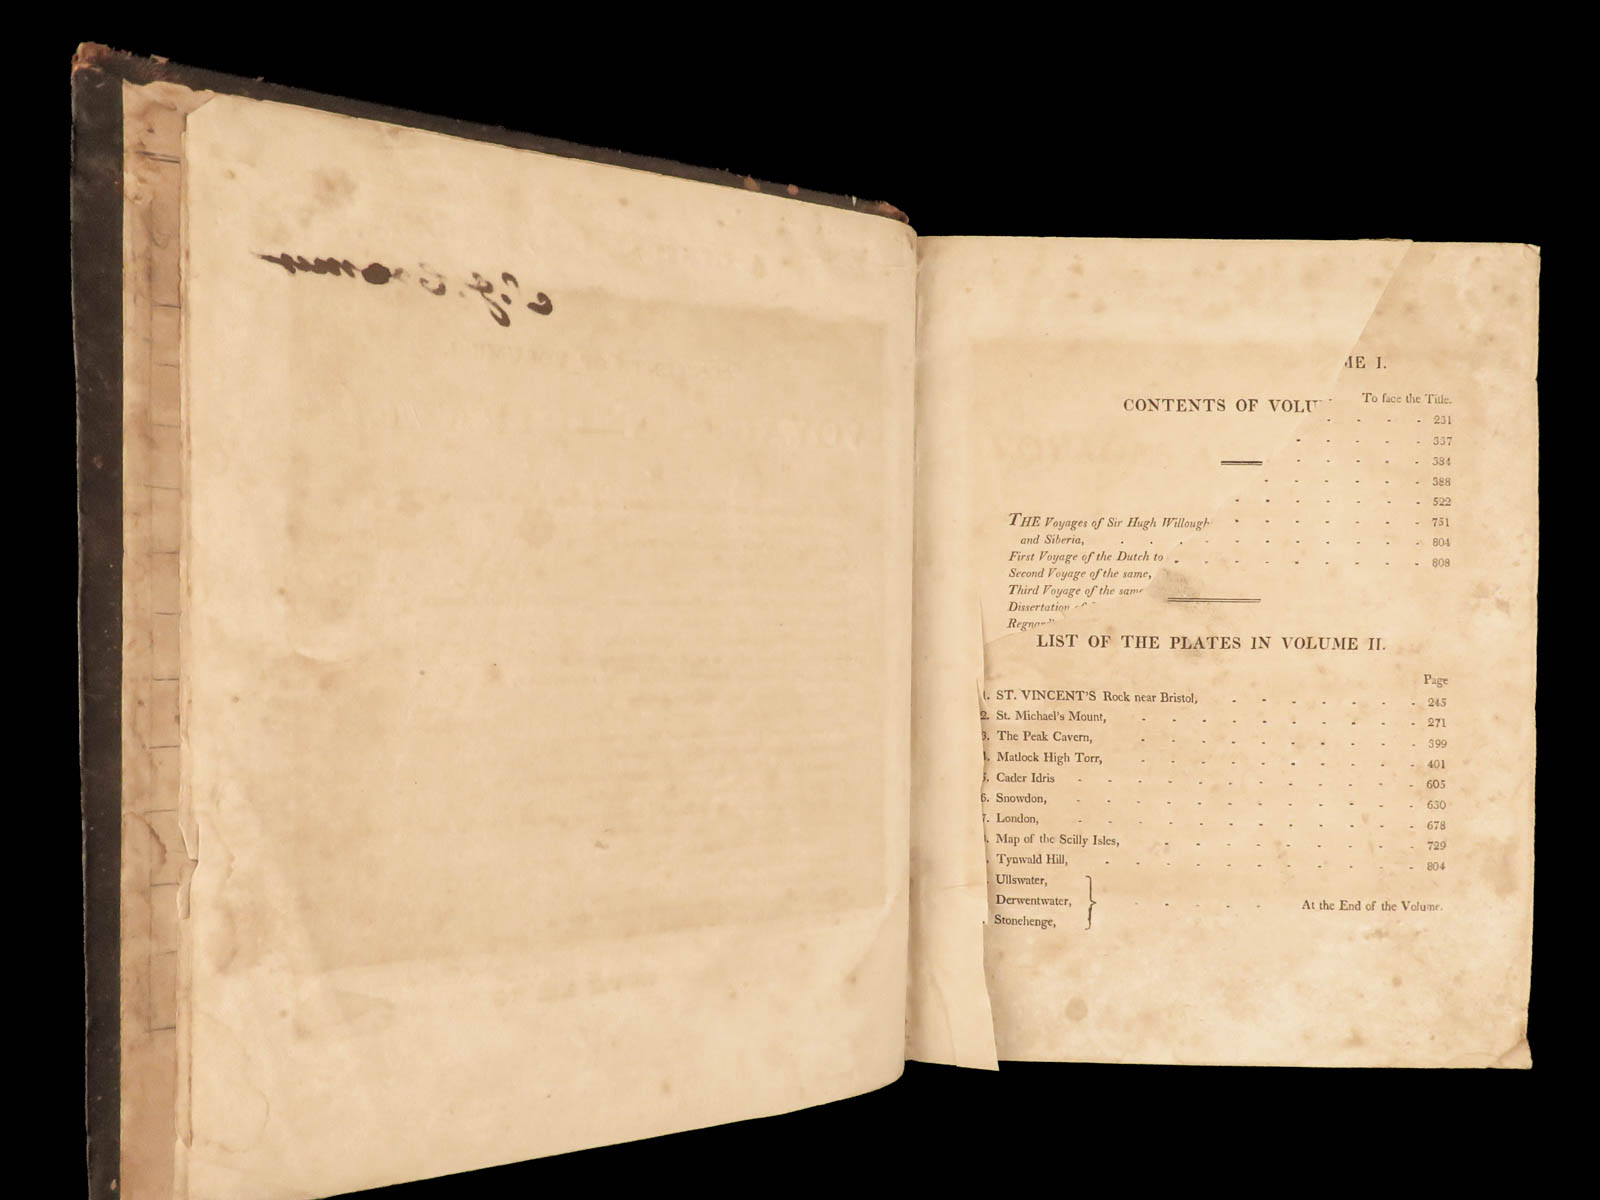 ME I.
CONTENTS OF VOLU
To face the Title.
231
337
384
388
522
THE Voyages of Sir Hugh Willough
751
and Siberia,
804
First Voyage of the Dutch to
808
Second Voyage of the same,
Third Voyage of the same
Dissertation of
Regnard'
LIST OF THE PLATES IN VOLUME II.
Page
1. ST. VINCENT'S Rock near Bristol, 245
2. St. Michael's Mount, 271
3. The Peak Cavern, 399
4. Matlock High Torr, 401
5. Cader Idris 605
6. Snowdon, 630
7. London, 678
. Map of the Scilly Isles, 729
. Tynwald Hill, 804
. Ullswater,
Derwentwater, At the End of the Volume.
. Stonehenge,